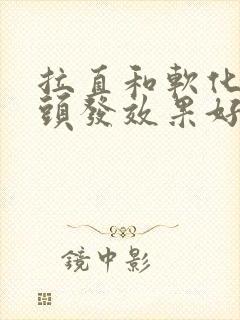 拉直和軟化
頭發效果好
鏡中影